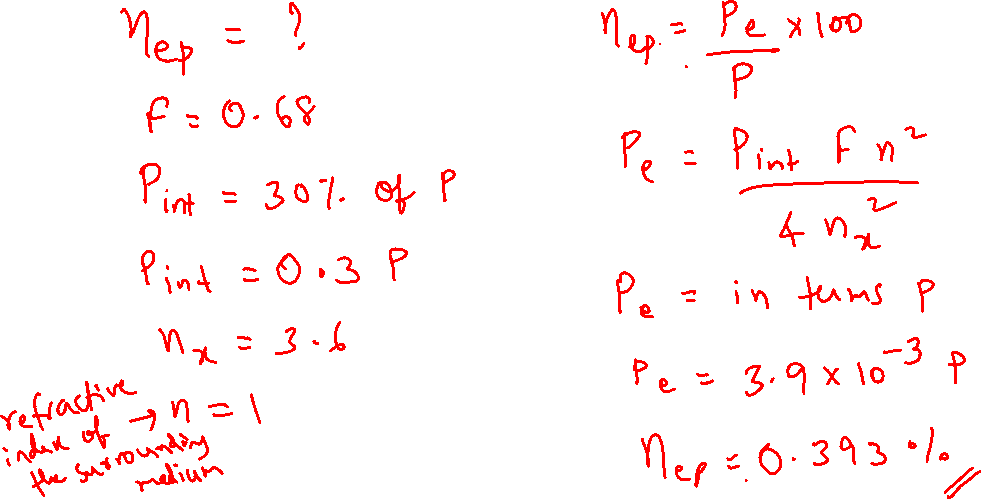 η_ep = ?
F = 0.68
P_int = 30% of P
P_int = 0.3 P
n_x = 3.6
refractive index of the surrounding medium → n = 1
η_ep = P_e / P × 100
P_e = P_int F n² / 4 n_x²
P_e = in terms P
P_e = 3.9 × 10⁻³ P
η_ep = 0.393 %